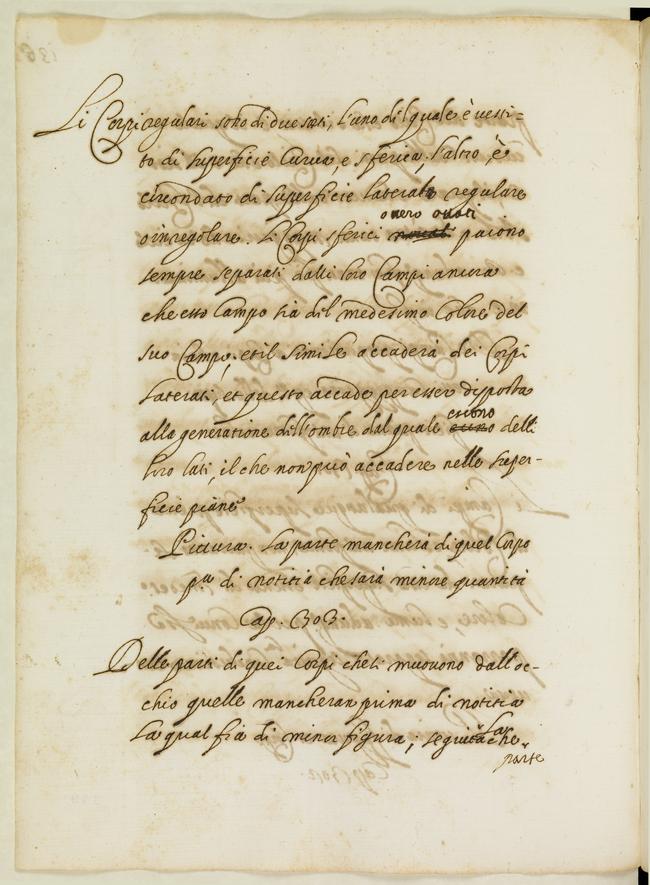 Li Corpi regulari sono di due sorti, l'uno dil quale è vesti=
to di superficie Curua, e sferica, l'altro, è
circondato di superficie laterate regulare
o inregolare. Li Corpi sferici overo ouati paiono
sempre separati dalli loro Campi ancora
che esso Campo sia dil medesimo Colore del
suo Campo, et il simile accaderà dei Corpi
Laterati, et questo accade per esser disposta
alla generatione dell'ombre dal quale escono delli
loro lati, il che non può accadere nelle super-
ficie piane
Pictura. La parte mancherà di quel Corpo
p.ª di notitia che sarà minore quantità
Cap. 303.
Delle parti di quei Corpi che si muouono dall'oc-
chio quelle mancheran prima di notitia
La qual fia di minor figura; seguita che
La parte